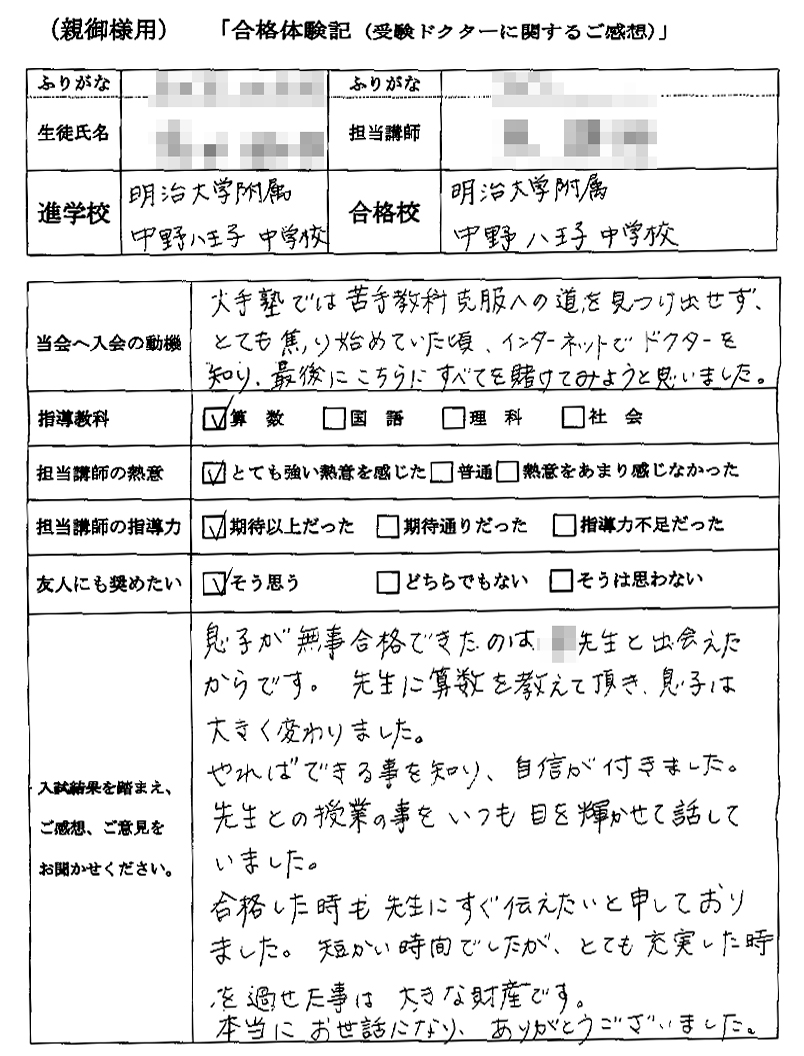 （親御様用）　「合格体験記（受験ドクターに関するご感想）」
ふりがな　ふりがな
生徒氏名　担当講師
進学校　明治大学附属　合格校　明治大学附属
中野八王子 中学校　中野八王子 中学校
大手塾では苦手教科克服への道を見つけ出せず、
当会へ入会の動機　とても焦り始めていた頃、インターネットでドクターを
知り、最後にこちらにすべてを賭けてみようと思いました。
指導教科　☑算　数　□国　語　□理　科　□社　会
担当講師の熱意　☑とても強い熱意を感じた□普通□熱意をあまり感じなかった
担当講師の指導力　☑期待以上だった　□期待通りだった　□指導力不足だった
友人にも奨めたい　☑そう思う　□どちらでもない　□そうは思わない
入試結果を踏まえ、
ご感想、ご意見を
お聞かせください。
息子が無事合格できたのは 先生と出会えた
からです。 先生に算数を教えて頂き、息子は
大きく変わりました。
やればできる事を知り、自信が付きました。
先生との授業の事をいつも目を輝かせて話して
いました。
合格した時も先生にすぐ伝えたいと申しており
ました。短かい時間でしたが、とても充実した時
を過せた事は 大きな財産です。
本当にお世話になり、ありがとうございました。